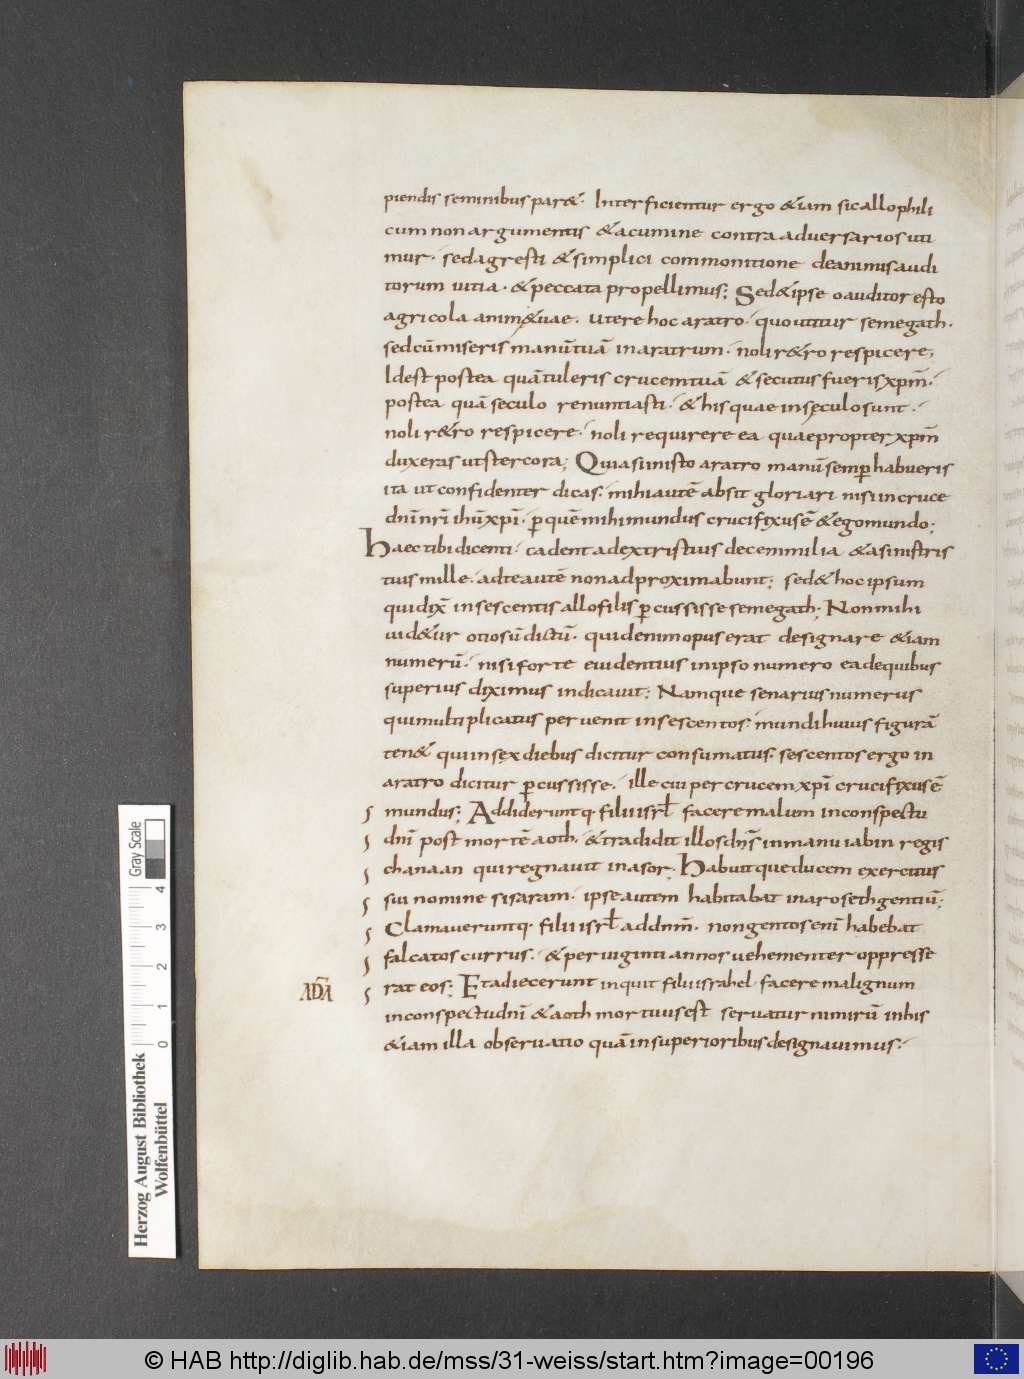 piendis seminibus par&. Interficientur ergo &iam sic allophili
cum non argumentis & acumine contra adversarios uti
mur. sed agresti & simplici commonitione de animis audi
torum uitia. & peccata propellimus; Sed & ipse o auditor esto
agricola animę tuae. utere hoc aratro. quo utitur semegath.
sed cū miseris manū tuā in aratrum. noli r&ro respicere,
Idest postea quā tuleris crucem tuā & secutus fueris xpm̄.
postea quā seculo renuntiasti. & his quae in sęculo sunt.
noli r&ro respicere. noli requirere ea quae propter xpm̄
duxeras ut stercora; Quia si in isto aratro manū semp habueris
ita ut confidenter dicas. mihi autē absit gloriari nisi in cruce
dnī nrī ihū xpī. p quē mihi mundus crucifixus ē & ego mundo;
Haec tibi dicenti. cadent a dextris tuis decem milia & a sinistris
tuis mille. ad te autē non adproximabunt; sed & hoc ipsum
qui dix̄ in sescentis allofilis pcussisse semegath. Non mihi
uid&ur otiosū dictū. quid enim opus erat designare &iam
numerū. nisi forte euidentius in ipso numero ea de quibus
superius diximus indicauit; Namque senarius numerus
qui multiplicatus peruenit in sescentos. mundi huius figurā
ten& qui in sex diebus dicitur consumatus. sescentos ergo in
aratro dicitur pcussisse. ille cui per crucem xpī crucifixus ē
mundus; Addiderunt q· filii isrl facere malum in conspectu
dnī post mortē aoth. & tradidit illos dn̄s in manu iabin regis
chanaan qui regnauit in asor. Habuitque ducem exercitus
sui nomine sisaram. ipse autem habitabat in aroseth gentiū;
Clamaverunt q· filii isrl ad dnm̄. nongentos enī habebat
falcatos currus. & per uiginti annos uehementer oppresse
ADĀ
rat eos; Et adiecerunt inquit filii israhel facere malignum
in conspectu dnī & aoth mortuus est servatur nimirū in his
&iam illa observatio quā in superioribus designauimus.
Herzog August Bibliothek
Wolfenbüttel
0 1 2 3 4
Gray Scale
© HAB http://diglib.hab.de/mss/31-weiss/start.htm?image=00196